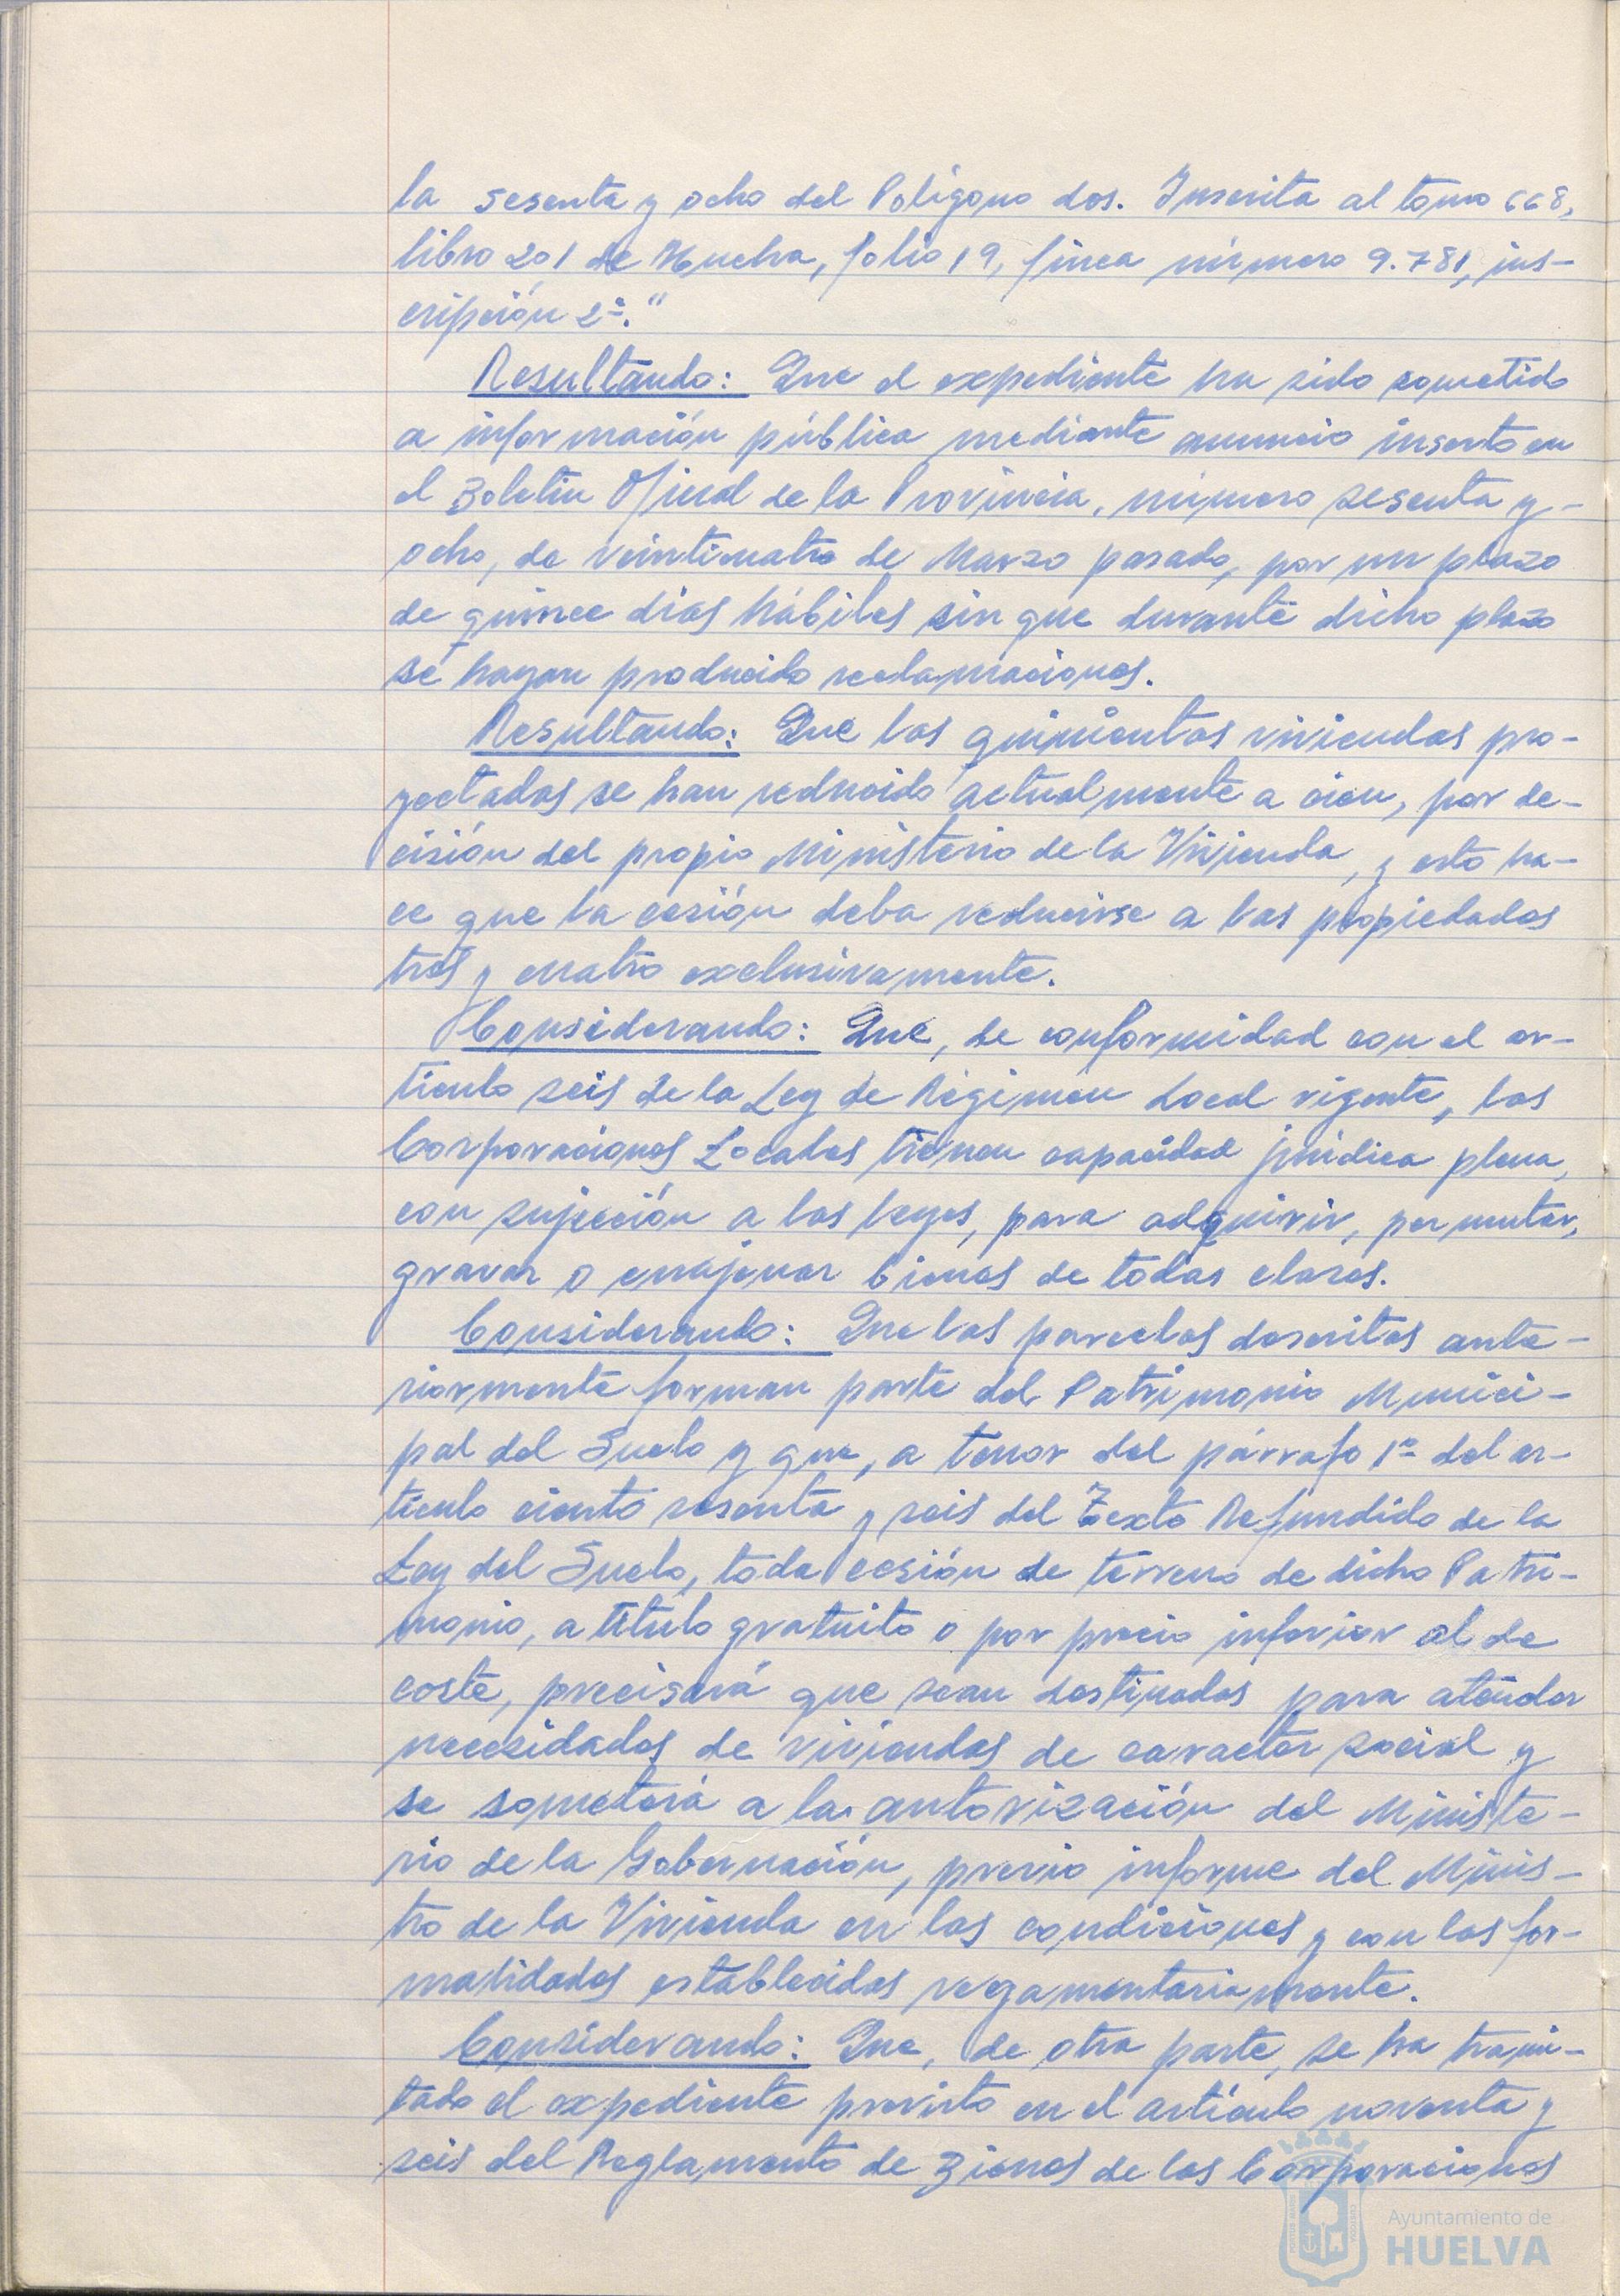 la sesenta y ocho del Polígono dos. Inscrita al tomo 668,
libro 201 de Huelva, folio 19, finca número 9.781, ins-
cripción 2ª."
Resultando: Que el expediente ha sido sometido
a información pública mediante anuncio inserto en
el Boletin Oficial de la Provincia, número sesenta y-
ocho, de veinticuatro de Marzo pasado, por un plazo
de quince días hábiles sin que durante dicho plazo
se hayan producido reclamaciones.
Resultando: Que las quinientas viviendas pro-
yectadas se han reducido actualmente a cien, por de-
cisión del propio Ministerio de la Vivienda, y esto ha-
ce que la cesión deba reducirse a las propiedades
tres y cuatro exclusivamente.
Considerando: Que, de conformidad con el ar-
tículo seis de la Ley de Régimen Local vigente, las
Corporaciones Locales tienen capacidad jurídica plena,
con sujección a las leyes, para adquirir, permutar,
gravar o enajenar bienes de todas clases.
Considerando: Que las parcelas descritas ante-
riormente forman parte del Patrimonio Munici-
pal del Suelo y que, a tenor del párrafo 1º del ar-
tículo ciento sesenta y seis del Texto Refundido de la
Ley del Suelo, toda cesión de terreno de dicho Patri-
monio, a título gratuito o por precio inferior al de
coste, precisará que sean destinados para atender
necesidades de viviendas de caracter social y
se someterá a la autorización del Ministe-
rio de la Gobernación, previo informe del Minis-
tro de la Vivienda en las condiciones y con las for-
malidades establecidas regamentariamente.
Considerando: Que, de otra parte, se ha trami-
tado el expediente previsto en el artículo noventa y
seis del Reglamento de Bienes de las Corporaciones
Ayuntamiento de
HUELVA